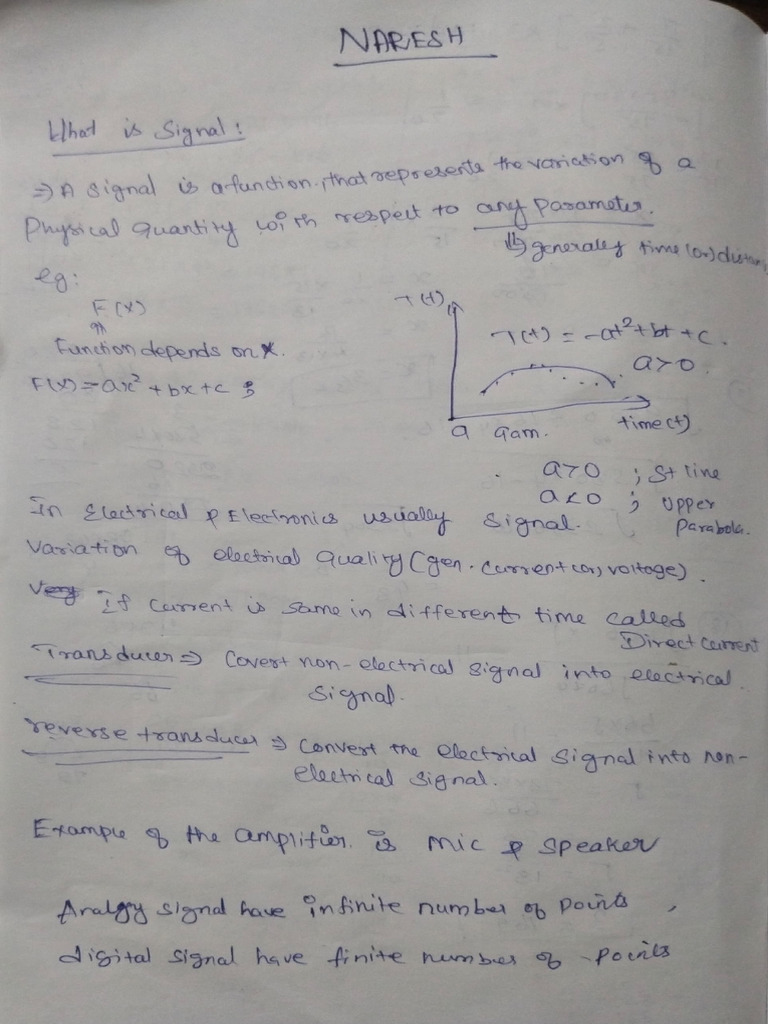 NARESH
What is Signal:
⇒ A signal is a function, that represents the variation of a
Physical Quantity with respect to any Parameter.
⇒ generaly time (or) distan
eg:
F(x)
T(t)
T(t) = -at² + bt + c.
Function depends on x.
a>0.
F(x) = -ax² + bx + c ;
time(t)
a 9am.
a>0 ; St line
a<0 ; Upper
Parabola.
In Electrical & Electronics usually signal.
Variation of electrical Quality (gen. current (or) voltage).
Very If current is same in different time called
Direct current
Transducer ⇒ Covert non-electrical signal into electrical
Signal.
reverse transducer ⇒ Convert the electrical signal into non-
electrical signal.
Example of the amplifier. is mic & speaker
Analgy signal have infinite number of points,
digital signal have finite number of points